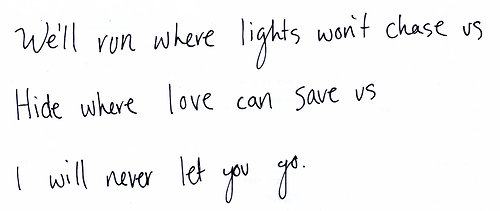 We'll run where lights won't chase us
Hide where love can save us
I will never let you go.